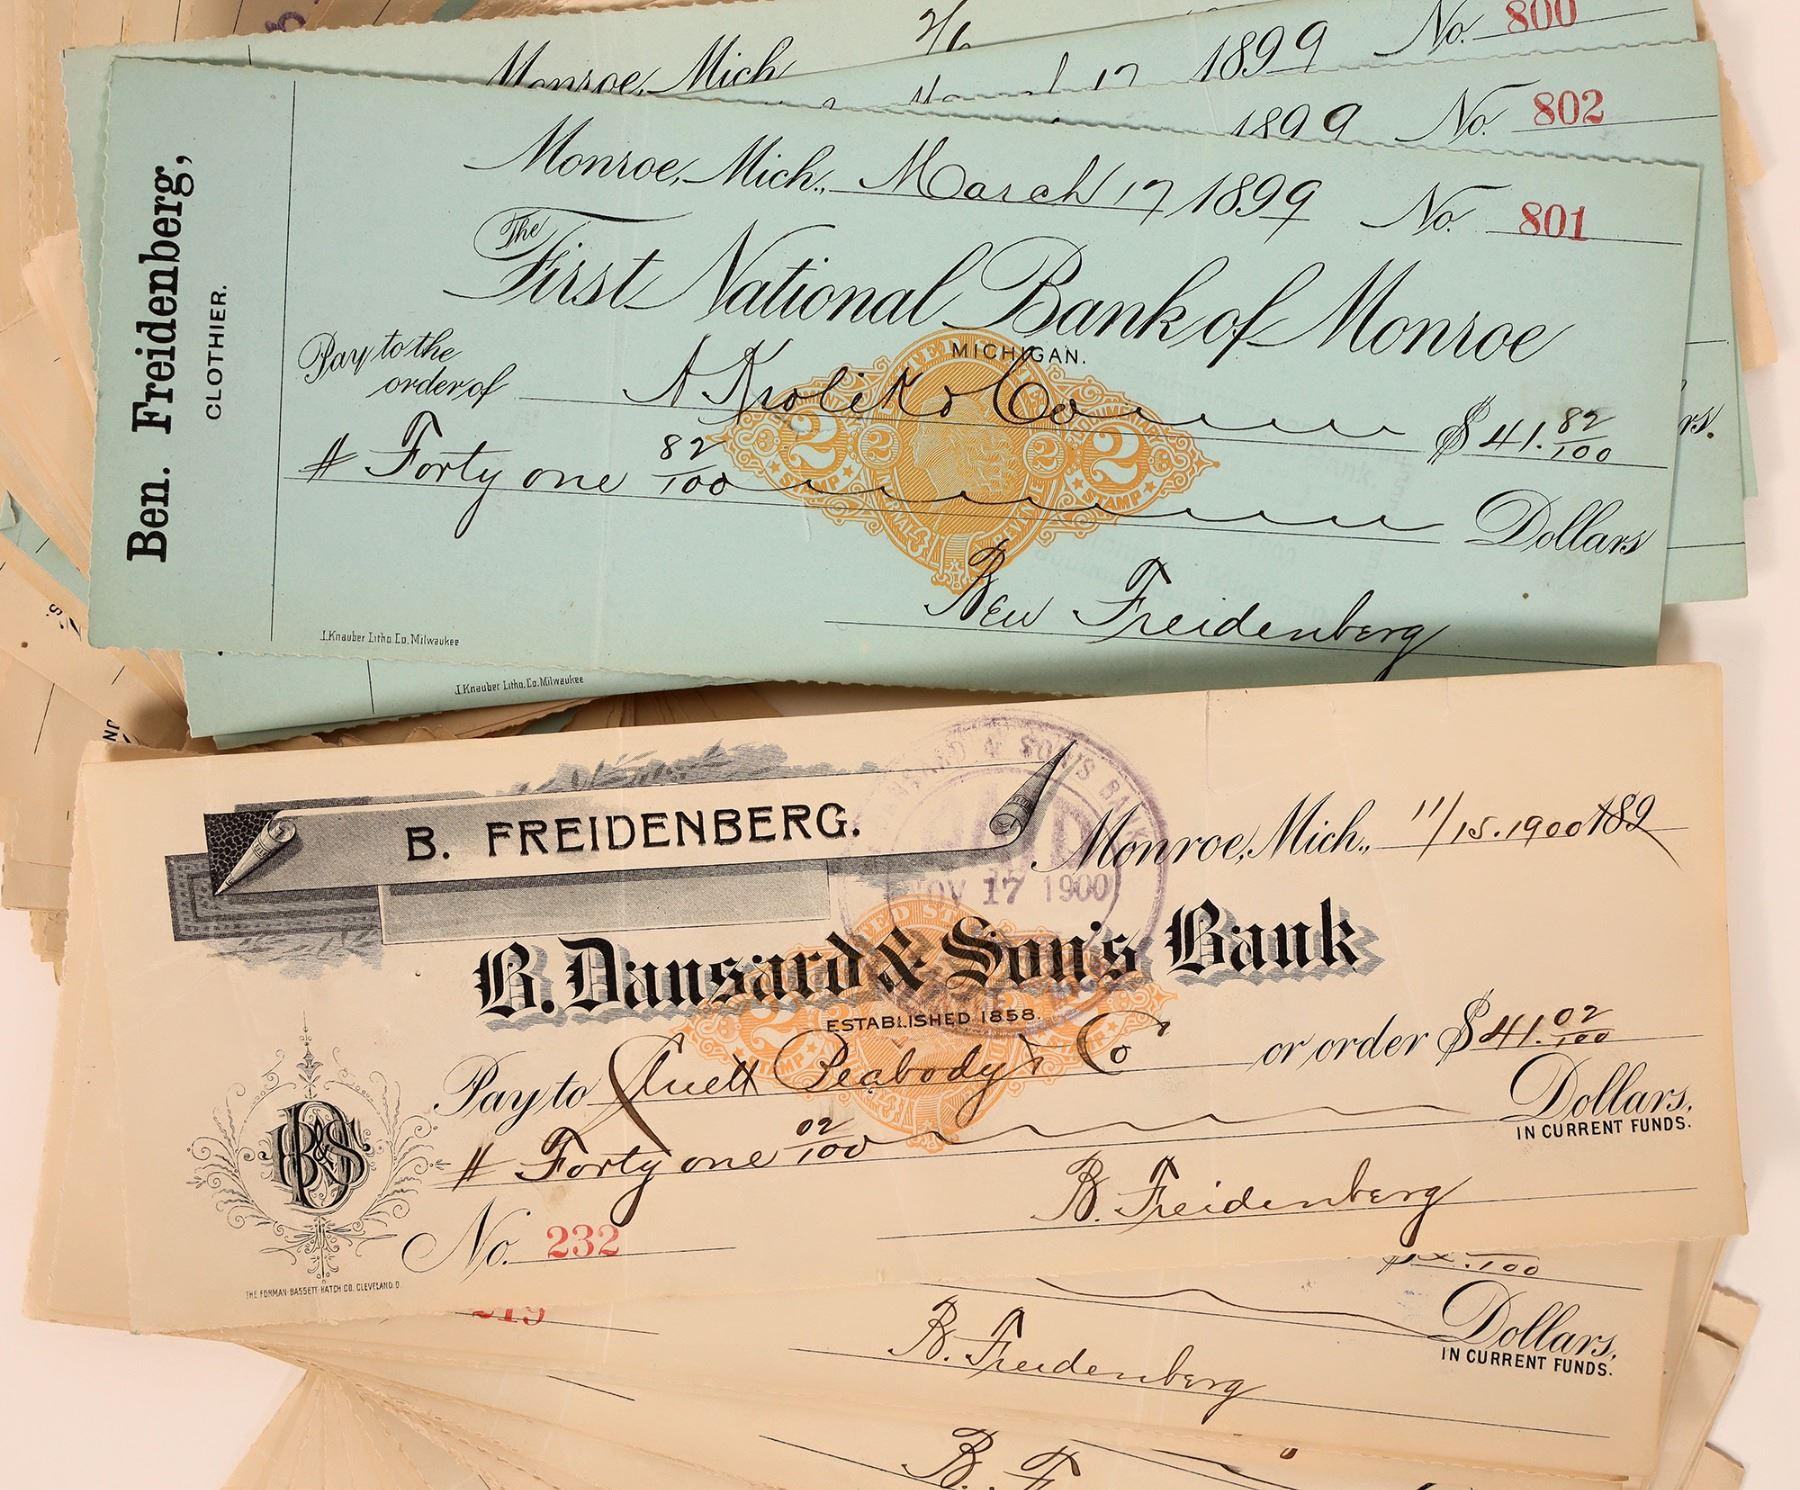 Monroe, Mich
2/6
1899 No. 800
1899 No. 802
Ben. Freidenberg,
CLOTHIER.
Monroe, Mich., March 17 1899 No. 801
The
First National Bank of Monroe
MICHIGAN.
Pay to the
order of A Krolik & Co $41.82/100
# Forty one 82/100 Dollars
2 2 2 2
STAMP STAMP
Ben Freidenberg
J.Knauber Litho.Co.Milwaukee
J.Knauber Litho.Co.Milwaukee
B. FREIDENBERG.
Monroe, Mich., 11/15.1900 189
& SON'S BANK
NOV 17 1900
B. Dansard & Son's Bank
ESTABLISHED 1858.
Pay to Cluett Peabody & Co or order $41.02/100
# Forty one 02/100 Dollars,
IN CURRENT FUNDS.
BD&S
B. Freidenberg
No. 232
THE FORMAN-BASSETT-HATCH CO. CLEVELAND, O.
219
Dollars,
IN CURRENT FUNDS.
B. Freidenberg
B. F